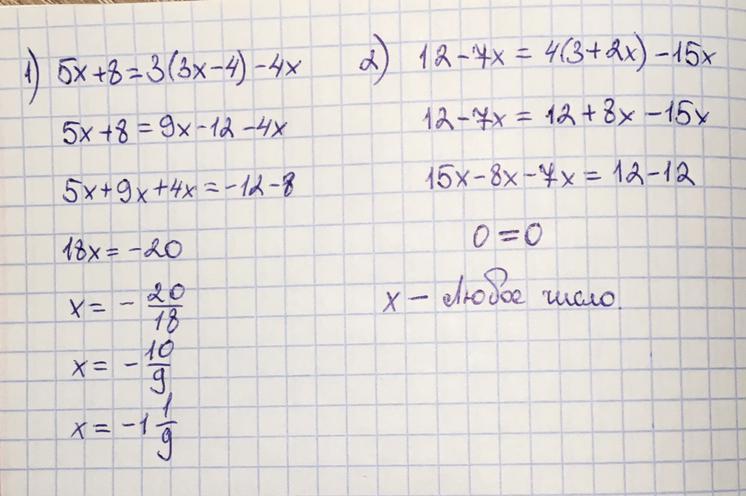 1) 5x+8=3(3x-4)-4x
5x+8=9x-12-4x
5x+9x+4x=-12-8
18x=-20
x=-20/18
x=-10/9
x=-1 1/9
2) 12-7x=4(3+2x)-15x
12-7x=12+8x-15x
15x-8x-7x=12-12
0=0
x - любое число.